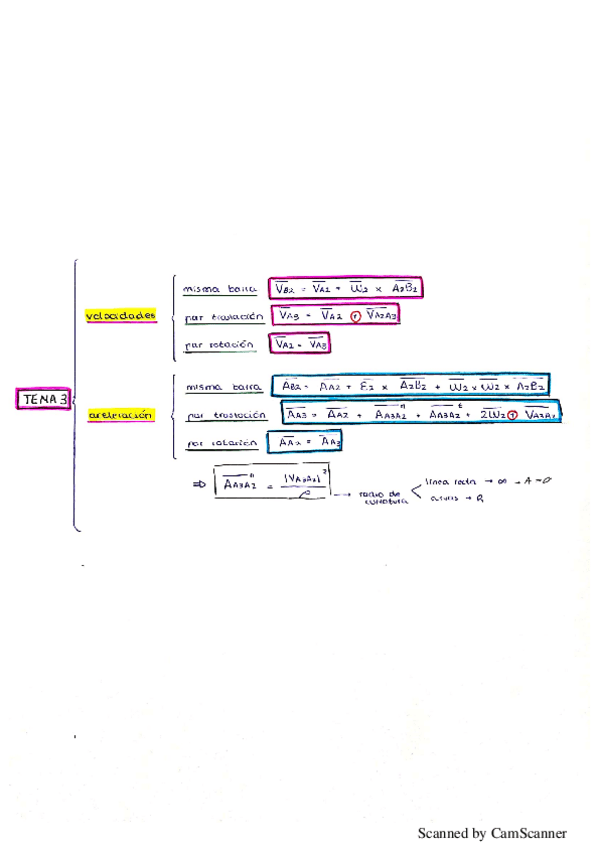 TEMA 3
velocidades
misma barra V̅B2 = V̅A2 + W̅2 × A̅2B̅2
par traslación V̅A3 = V̅A2 + V̅A2A3
par rotación V̅A2 = V̅A3
aceleración
misma barra A̅B2 = A̅A2 + E̅2 × A̅2B̅2 + W̅2 × W̅2 × A̅2B̅2
par traslación A̅A3 = A̅A2 + A̅A3A2ⁿ + A̅A3A2ᵗ + 2W̅2 V̅A2A3
par rotación A̅A2 = A̅A3
⇒ A̅A3A2ⁿ = |VA3A2|² / ρ → radio de curvatura
línea recta → ∞ → A = 0
curvas → R
Scanned by CamScanner